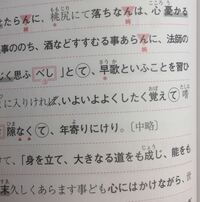 たらんに、桃尻にて落ちなんは、心憂かる
事ののち、酒などすすむる事あらんに、法師の
しく思ふべしとて、早歌といふことを習ひ
に入りければ、いよいよよくしたく覚えて嗜
隙なくて、年寄りにけり。[中略]
て、「身を立て、大きなる道をも成じ、能をも
末久しくあらます事ども心にはかけながら、